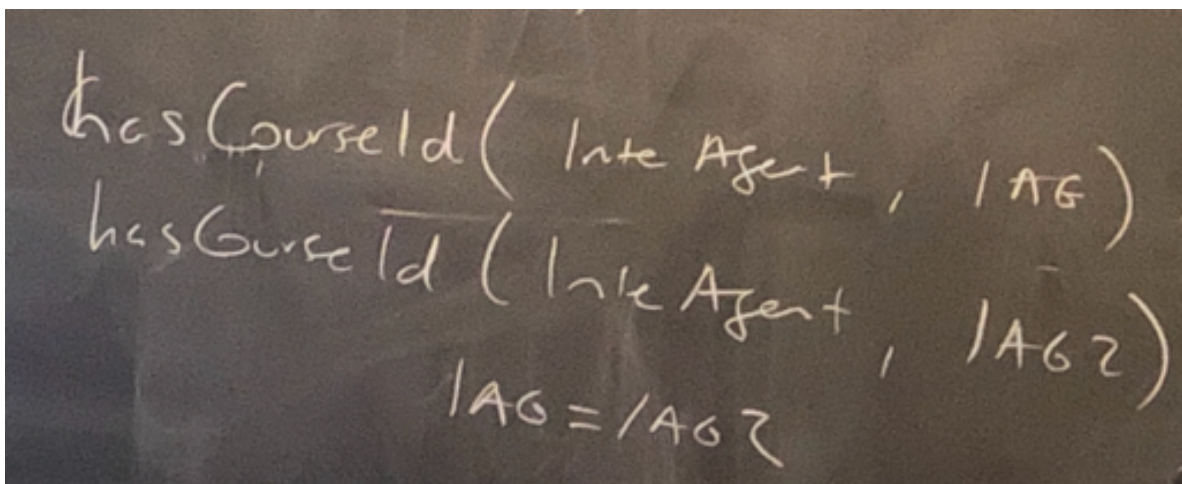 hasCourseId( InteAgent, IAG)
hasCourseId ( InteAgent, IAG2)
IAG=IAG2